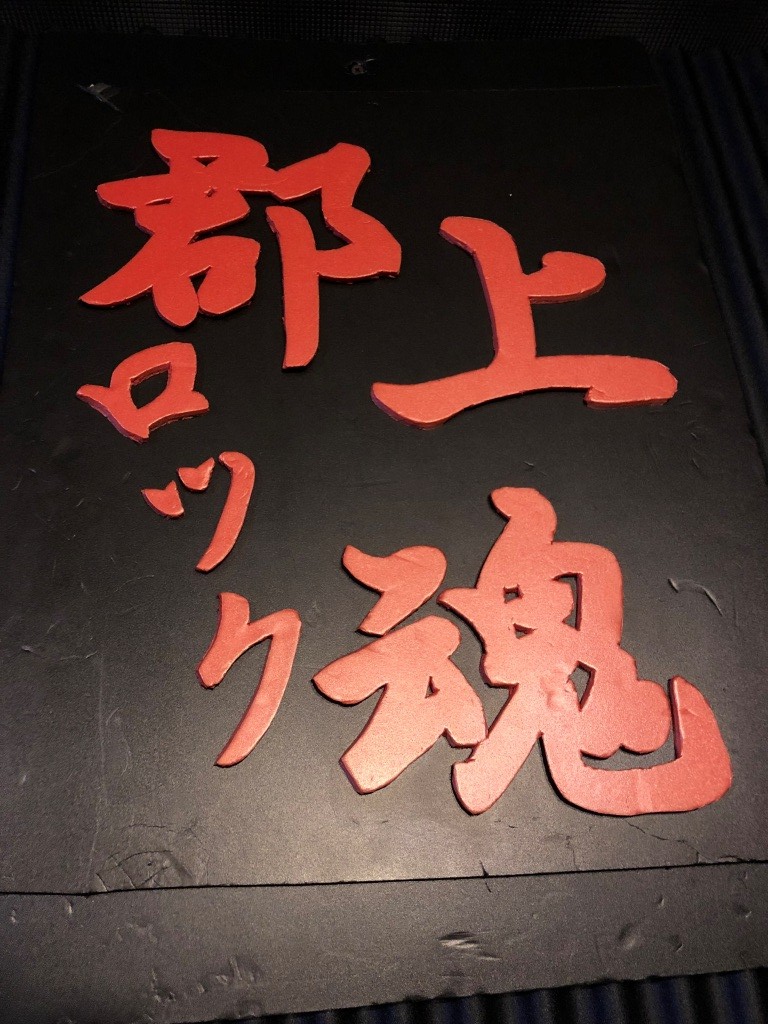 郡上
ロック
魂